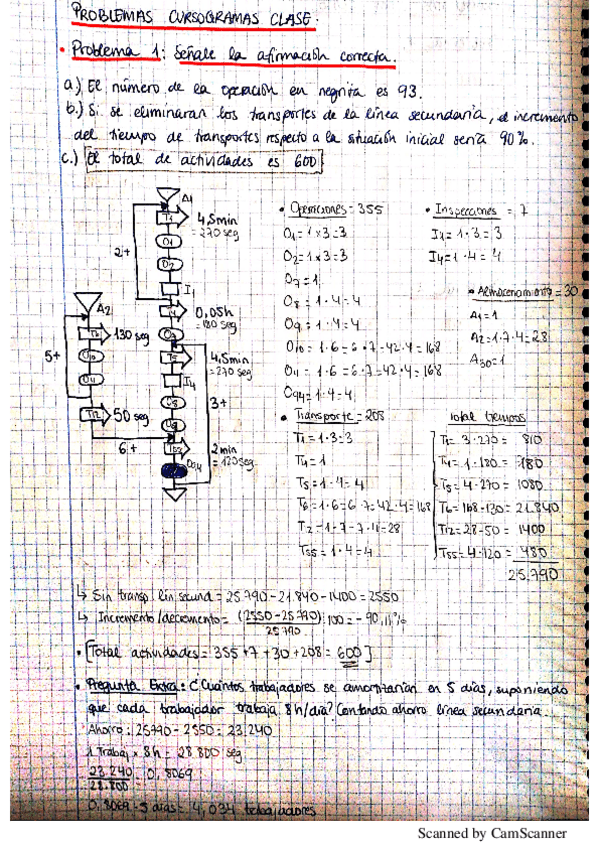 PROBLEMAS CURSOGRAMAS CLASE.
• Problema 1: Señale la afirmación correcta.
a) El número de la operación en negrita es 93.
b.) Si se eliminaran los transportes de la línea secundaria, el incremento
del tiempo de transportes respecto a la situación inicial sería 90%.
c.) El total de actividades es 600
A1
T1 4,5min
= 270 seg
O1
O2
2+
I1
T4 0,05h
= 180 seg
O7
4,5min
= 270 seg
I4
O8
O9
3+
2min
= 120 seg
T55
O94
A2
130 seg
5+
O10
O11
T12 50 seg
6+
• Operaciones = 355
O1 = 1 x 3 = 3
O2 = 1 x 3 = 3
O7 = 1
O8 = 1 · 4 = 4
O9 = 1 · 4 = 4
O10 = 1 · 6 = 6 · 7 = 42 · 4 = 168
O11 = 1 · 6 = 6 · 7 = 42 · 4 = 168
O94 = 1 · 4 = 4
• Inspecciones = 7
I1 = 1 · 3 = 3
I4 = 1 · 4 = 4
• Almacenamiento = 30
A1 = 1
A2 = 1 · 7 · 4 = 28
A30 = 1
• Transporte = 208
T1 = 1 · 3 = 3
T4 = 1
T5 = 1 · 4 = 4
T6 = 1 · 6 = 6 · 7 = 42 · 4 = 168
T55 = 1 · 4 = 4
Total tiempos
T1 = 3 · 270 = 810
T4 = 1 · 180 = 180
T5 = 4 · 270 = 1080
T6 = 168 · 130 = 21.840
T12 = 28 · 50 = 1400
T55 = 4 · 120 = 480
25.790
↳ Sin transp. lin secund = 25.790 - 21.840 - 1400 = 2550
↳ Incremento/decremento = (2550 - 25.790) / 25.790 · 100 = - 90,11%
• [Total actividades = 355 + 7 + 30 + 208 = 600]
• Pregunta Extra: ¿Cuántos trabajadores se amortizarían en 5 días, suponiendo
que cada trabajador trabaja 8h/día? Contando ahorro línea secundaria.
Ahorro: 25790 - 2550 = 23.240
1 Trabaj x 8h = 28.800 seg
23.240 / 28.800 = 0,8069
0,8069 · 5 días = 4,034 trabajadores
Scanned by CamScanner